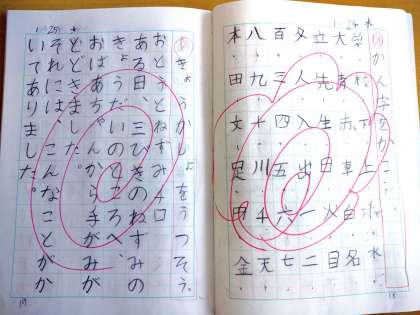 1-24
かん字をかこう
学校下上水
大赤車白名
立先生日火目
夕人入出一二
百三四五六七
八九十川千天
本田文足男金
18
1-25 木
きょうかしょをうつそう。
おとうとねずみチロ
ある日、三びきのねずみの
きょうだいのところへ、
おばあちゃんから手がみが
とどきました。
それには、こんなことがか
いてありました。
19